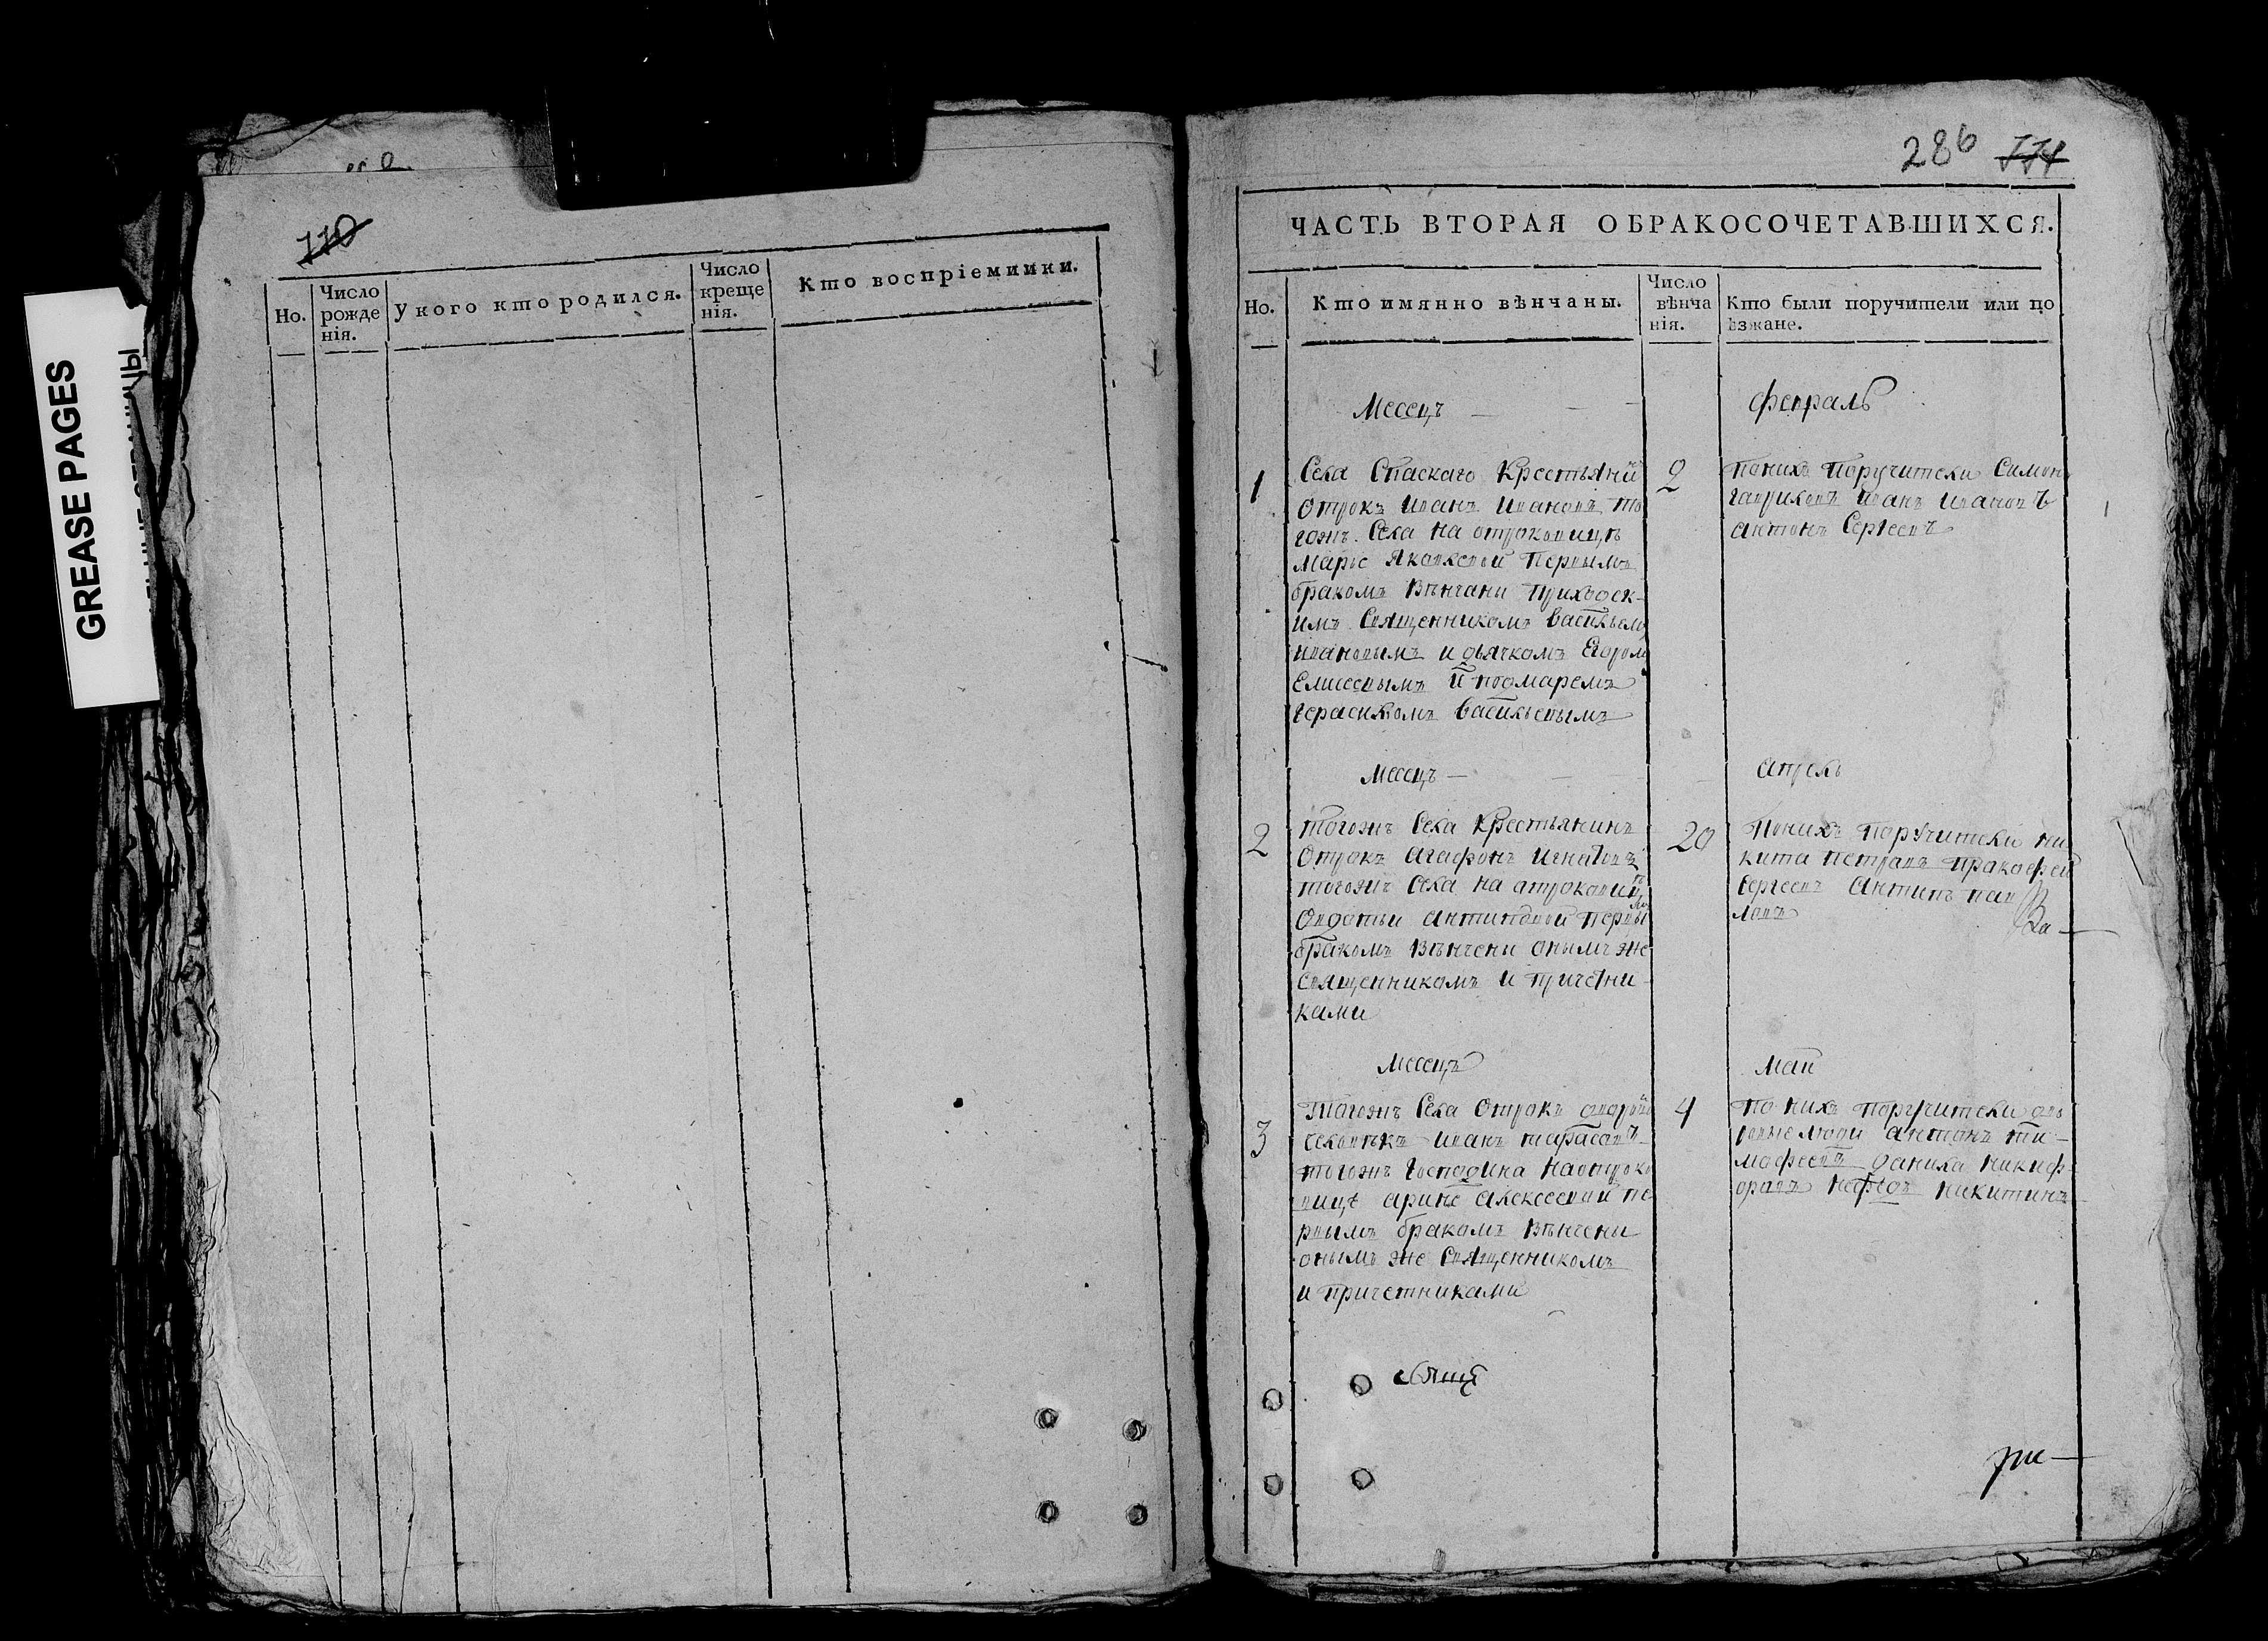 GREASE PAGES
110
Но.
Число
рожде
нія.
У кого кто родился.
Число
креще
нія.
Кто воспріемники.
286
ЧАСТЬ ВТОРАЯ ОБРАКОСОЧЕТАВШИХСЯ.
Но.
Кто имянно вѣнчаны.
Число
вѣнча
нія.
Кто были поручители или по
ѣзжане.
Месецъ
февраль
1
Села Спаскаго Крестьяни
отрокъ иванъ ивановъ то
гожъ Села на отроковицѣ
марье Яковлевой первымъ
бракомъ вѣнчани приходск
имъ Священникомъ васильем
ивановымъ и дьячкомъ Егором
Елисеевымъ и понамаремъ
герасимомъ васильевымъ
2
поних поручители Симон
гавриловъ иванъ ивановъ
антонъ Сергеевъ
Месецъ
апрель
2
тогожъ Села Крестьянинъ
Отрокъ агафонъ игнатовъ
тогожъ Села на отроковиц
Овдотьи антиповой первы
бракомъ вѣнчени онымъ же
священникомъ и причетни
ками
20
Понихъ поручители ни
кита петровъ пракофеи
Сергеевъ антипъ пав
ловъ
Месецъ
маи
3
тогожъ Села Отрокъ дворовои
человѣкъ иванъ тарасовъ
тогожъ Господина наотроко
вице арине алексеевои пе
рвымъ бракомъ вѣнчены
онымъ же Священникомъ
и причетниками
4
по них поручители дво
ровые люди антонъ ти
мофеевъ данила никиф
оровъ нефедъ никитинъ